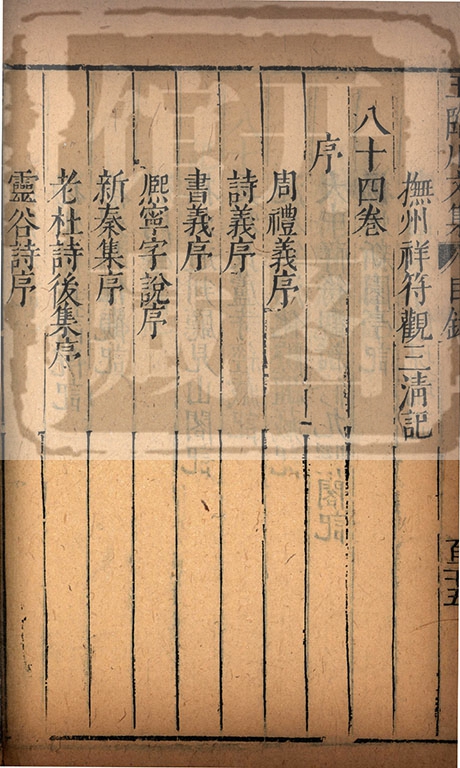 撫州祥符觀三清記
八十四卷
序
周禮義序
詩義序
書義序
熈寧字說序
新秦集序
老杜詩後集序
靈谷詩序